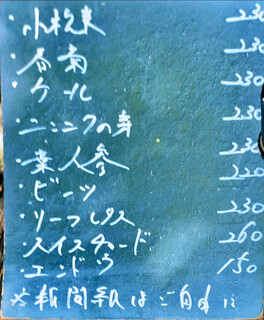 ・小松菜 230
・春菊 230
・ケール 230
・ニンニクの芽 230
・葉人参 220
・ビーツ 230
・リーフレタス 230
・スイスチャード 260
・エンドウ 150
※新聞紙はご自由に